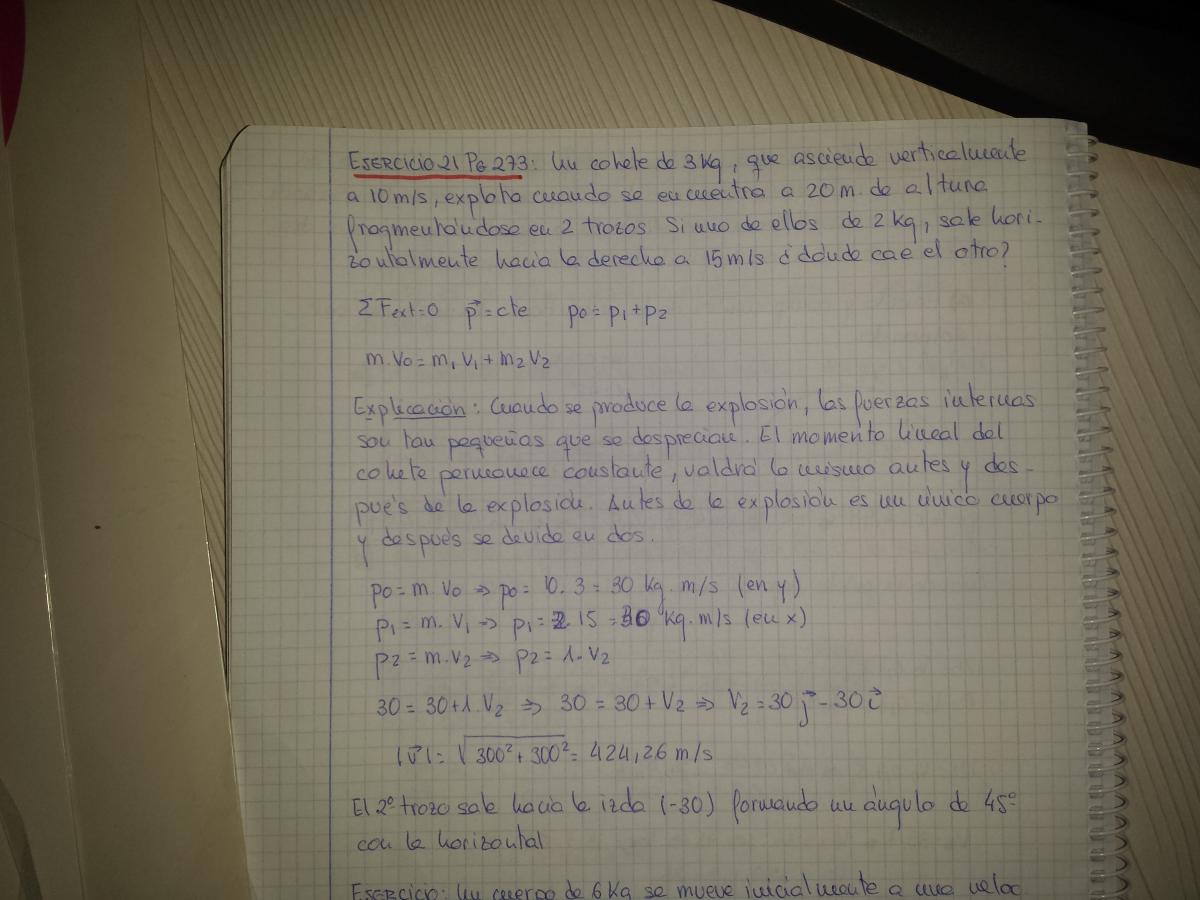 EJERCICIO 21 PG 273: Un cohete de 3 kg, que asciende verticalmente
a 10 m/s, explota cuando se encuentra a 20 m. de altura
fragmentándose en 2 trozos Si uno de ellos de 2 kg, sale hori-
zontalmente hacia la derecha a 15 m/s ¿dónde cae el otro?
ΣFext=0 p⃗=cte p0=p1+p2
m.V0=m1V1+m2V2
Explicación: Cuando se produce la explosión, las fuerzas internas
son tan pequeñas que se desprecian. El momento lineal del
cohete permanece constante, valdrá lo mismo antes y des-
pués de la explosión. Antes de la explosión es un único cuerpo
y después se devide en dos.
p0=m.V0 ⇒ p0= 10.3=30 kg.m/s (en y)
p1=m.V1 ⇒ p1=2.15=30 kg.m/s (en x)
p2=m.V2 ⇒ p2=1.V2
30=30+1.V2 ⇒ 30=30+V2 ⇒ V2=30 j⃗-30 i⃗
|v⃗|=√300²+300²=424,26 m/s
El 2º trozo sale hacia la izda (-30) formando un ángulo de 45º
con la horizontal
EJERCICIO: Un cuerpo de 6 Kg se mueve inicialmente a una veloc